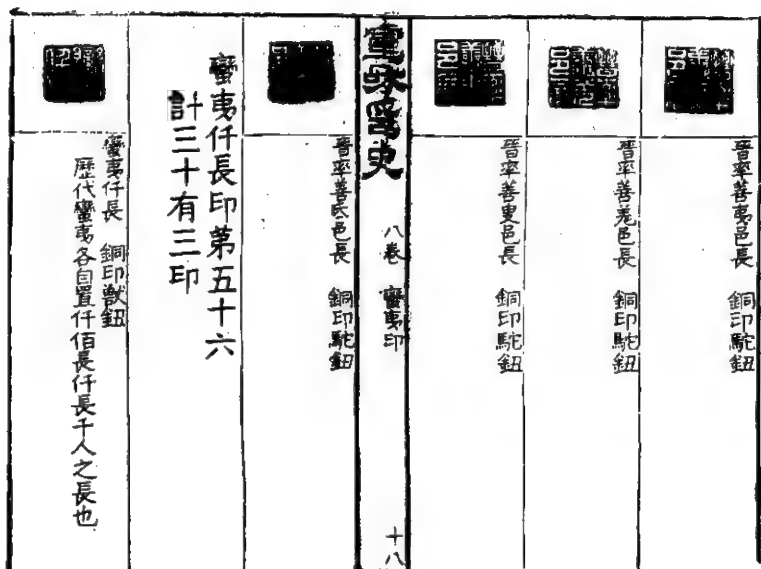 晉率善夷邑長 銅印駝鈕
晉率善羌邑長 銅印駝鈕
晉率善叟邑長 銅印駝鈕
八卷 蠻夷印 十八
晉率善氐邑長 銅印駝鈕
蠻夷仟長印第五十六
計三十有三印
蠻夷仟長 銅印獸鈕
歷代蠻夷各自置仟佰長仟長千人之長也